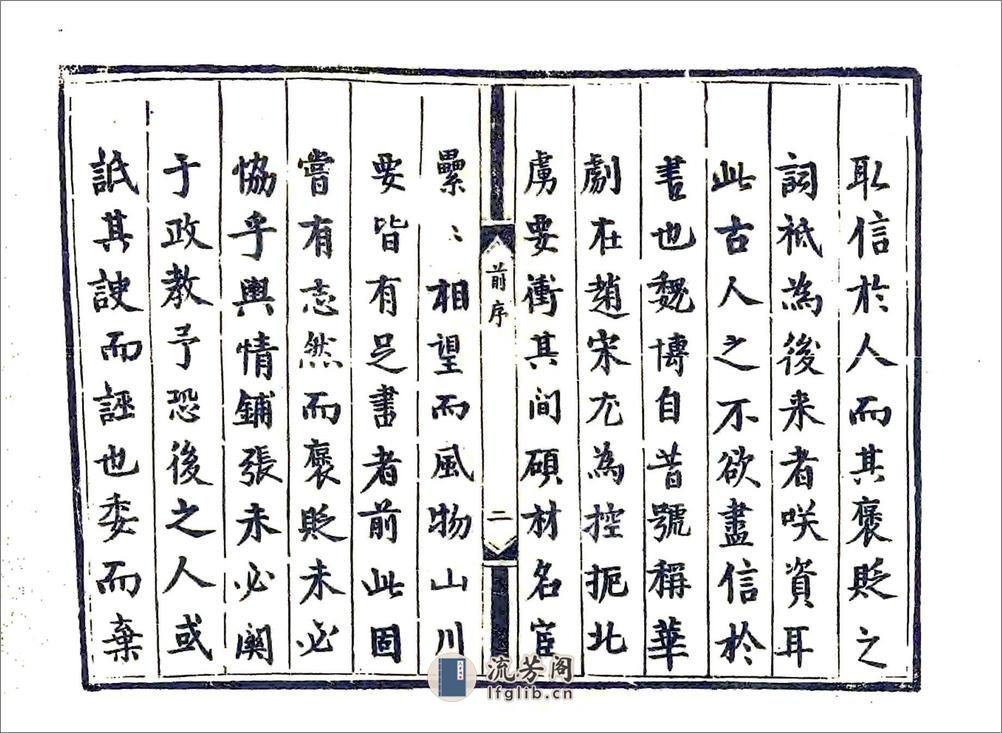 取信於人而其褒貶之
詞祇為後来者咲資耳
此古人之不欲盡信於
書也魏博自昔號稱華
劇在趙宋尤為控扼北
虜要衝其间碩材名宦
前序
二
纍〻相望而風物山川
要皆有足書者前此固
嘗有志然而褒貶未必
恊乎輿情鋪張未必関
于政教予恐後之人或
詆其諛而誣也委而棄
流芳阁
lfglib.cn